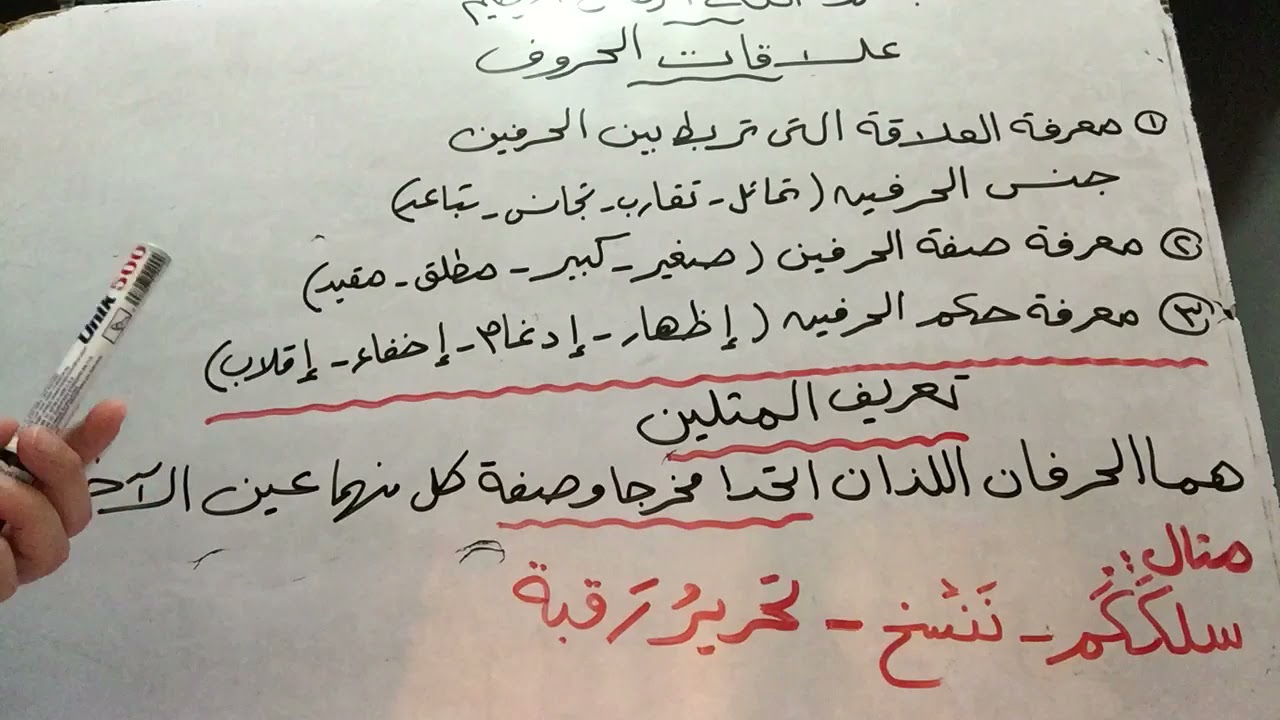 علاقات الحروف
① معرفة العلاقة التى تربط بين الحرفين
جنس الحرفين (تماثل - تقارب - تجانس - تباعد)
② معرفة صفة الحرفين (صغير - كبير - مطلق - مقيد)
③ معرفة حكم الحرفين (إظهار - إدغام - إخفاء - إقلاب)
تعريف المتلين
هما الحرفان اللذان اتحدا مخرجا وصفة كل منهما عين الآخ
مثال:
سلكَكُم - نَنْسَخ - تحريرُ رَقبة
Unik 500